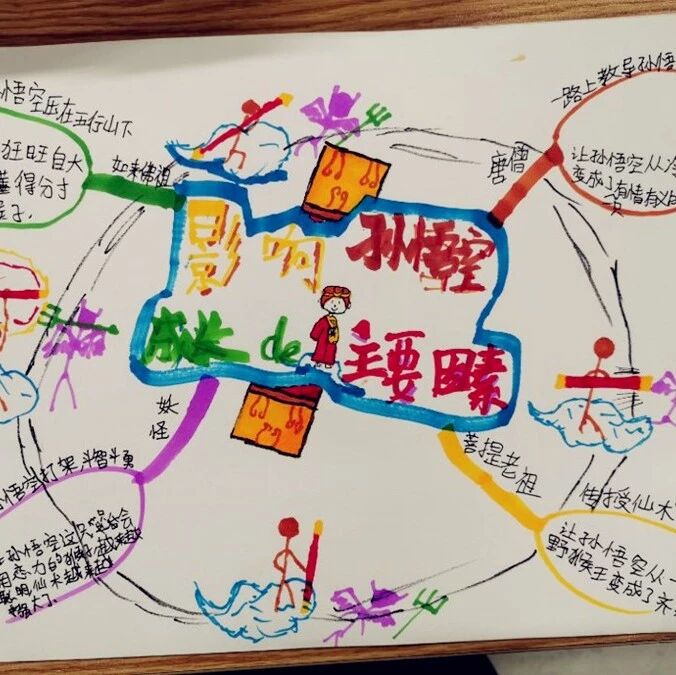 影响孙悟空
成长de主要因素
悟空压在五行山下
如来佛祖
狂旺自大
懂得分寸
孩子.
一路上教导孙悟
唐僧
让孙悟空从冷
变成了有情有义的
妖怪
悟空打架斗智斗勇
让孙悟空这只
用态力的猴
聪明仙术越来越
强大了.
菩提老祖
传授仙术
让孙悟空从一
野猴王变成了齐